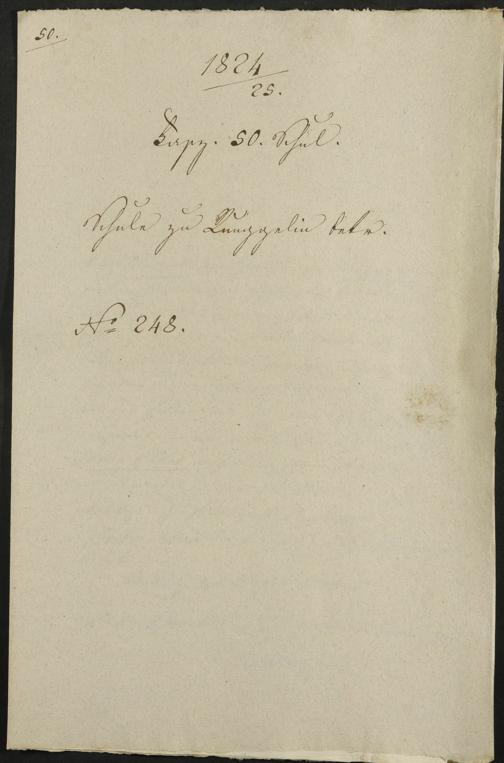 50.
1824
25.
Fasz. 50. Schul.
Schule zu Runggelin betr.
No 248.